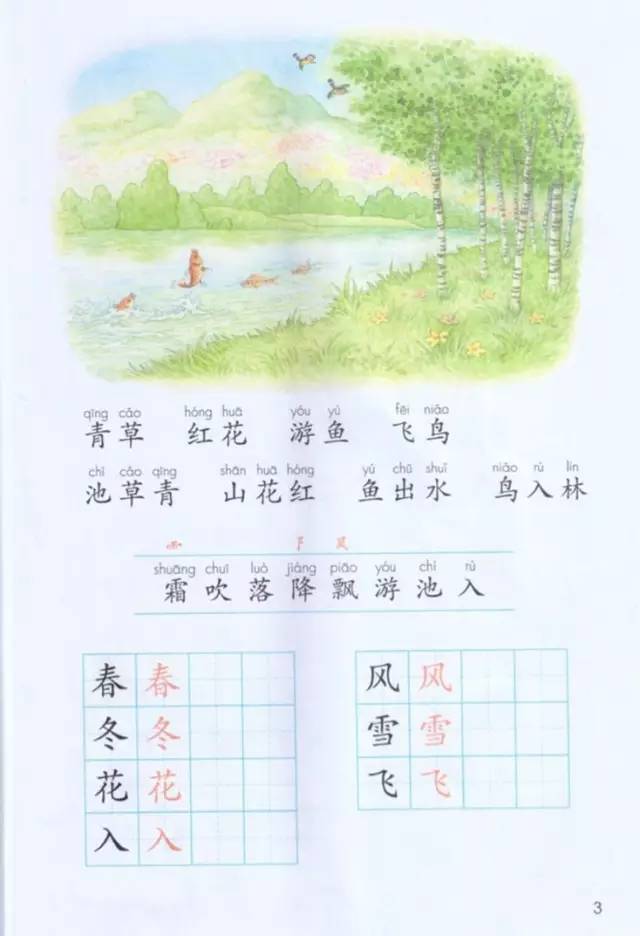 qīng cǎo hóng huā yóu yú fēi niǎo
青草 红花 游鱼 飞鸟
chí cǎo qīng shān huā hóng yú chū shuǐ niǎo rù lín
池草青 山花红 鱼出水 鸟入林
⻗ 阝 风
shuāng chuī luò jiàng piāo yóu chí rù
霜 吹 落 降 飘 游 池 入
春 春 风 风
冬 冬 雪 雪
花 花 飞 飞
入 入
3